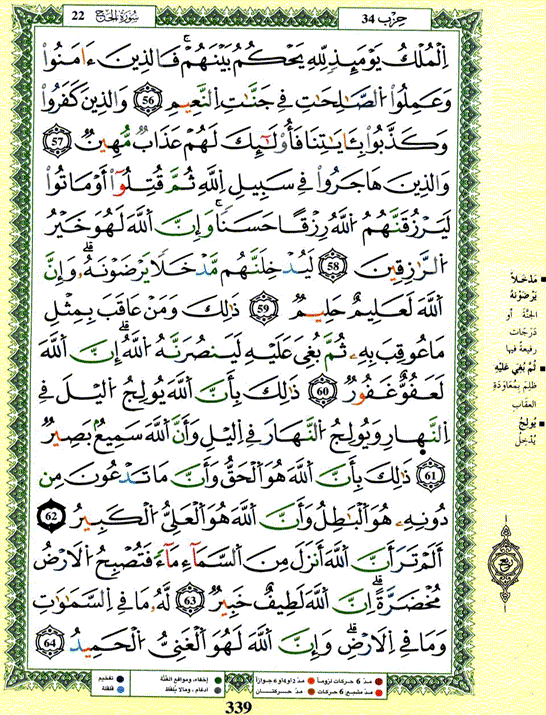 حِزْب 34
سُورَةُ الحَجّ 22
اِ۬لْمُلْكُ يَوْمَئِذٍ لِّلهِ يَحْكُمُ بَيْنَهُمْۖ فَالذِينَ ءَامَنُواْ
وَعَمِلُواْ الصَّٰلِحَٰتِ فِي جَنَّٰتِ اِ۬لنَّعِيمِ 56 وَالذِينَ كَفَرُواْ
وَكَذَّبُواْ بِـَٔايَٰتِنَا فَأُوْلَٰٓئِكَ لَهُمْ عَذَابٌ مُّهِينٌ 57
وَالذِينَ هَاجَرُواْ فِي سَبِيلِ اِ۬للَّهِ ثُمَّ قُتِلُوٓاْ أَوْ مَاتُواْ
لَيَرْزُقَنَّهُمُ اُ۬للَّهُ رِزْقاً حَسَناًۖ وَإِنَّ اَ۬للَّهَ لَهُوَ خَيْرُ
اُ۬لرَّٰزِقِينَ 58 لَيُدْخِلَنَّهُم مَّدْخَلاً يَرْضَوْنَهُۥۖ وَإِنَّ
اَ۬للَّهَ لَعَلِيمٌ حَلِيمٌ 59 ذَٰلِكَ وَمَنْ عَاقَبَ بِمِثْلِ
مَا عُوقِبَ بِهِۦ ثُمَّ بُغِيَ عَلَيْهِ لَيَنصُرَنَّهُ اُ۬للَّهُۖ إِنَّ اَ۬للَّهَ
لَعَفُوٌّ غَفُورٌ 60 ذَٰلِكَ بِأَنَّ اَ۬للَّهَ يُولِجُ اُ۬ليْلَ فِي
اِ۬لنَّهارِ وَيُولِجُ اُ۬لنَّهَارَ فِي اِ۬ليْلِ وَأَنَّ اَ۬للَّهَ سَمِيعٌۢ بَصِيرٌ
61 ذَٰلِكَ بِأَنَّ اَ۬للَّهَ هُوَ اَ۬لْحَقُّ وَأَنَّ مَا تَدْعُونَ مِن
دُونِهِۦ هُوَ اَ۬لْبَٰطِلُ وَأَنَّ اَ۬للَّهَ هُوَ اَ۬لْعَلِيُّ اُ۬لْكَبِيرُ 62
أَلَمْ تَرَ أَنَّ اَ۬للَّهَ أَنزَلَ مِنَ اَ۬لسَّمَآءِ مَآءً فَتُصْبِحُ اُ۬لَارْضُ
مُخْضَرَّةًۖ اِنَّ اَ۬للَّهَ لَطِيفٌ خَبِيرٌ 63 لَّهُۥ مَا فِي اِ۬لسَّمَٰوَٰتِ
وَمَا فِي اِ۬لَارْضِۖ وَإِنَّ اَ۬للَّهَ لَهُوَ اَ۬لْغَنِيُّ اُ۬لْحَمِيدُ 64
مَدْخَلاً
يَرْضَوْنَهُ
الجَنَّةَ أو
دَرَجَات
رفيعةً فيها
ثُمَّ بُغِيَ عَلَيْهِ
ظُلِمَ بِمُعَاوَدَةِ
العِقاب
يُولِجُ
يُدْخِلُ
مدّ 6 حركات لزوماً مدّ 2 أو 4 أو 6 جوازاً
مدّ مشبع 6 حركات مدّ حركتان
إخفاء، ومواقع الغُنَّة
إدغام، وما لا يُلفَظ
تفخيم
قلقلة
339